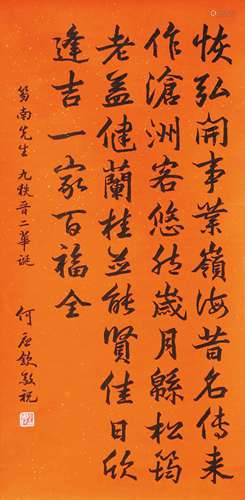 恢弘開事業嶺海昔名傳來
作滄洲客悠然歲月緜松筠
老益健蘭桂並能賢佳日欣
逢吉一家百福全
筠南先生 九秩晉二華誕
何應欽敬祝